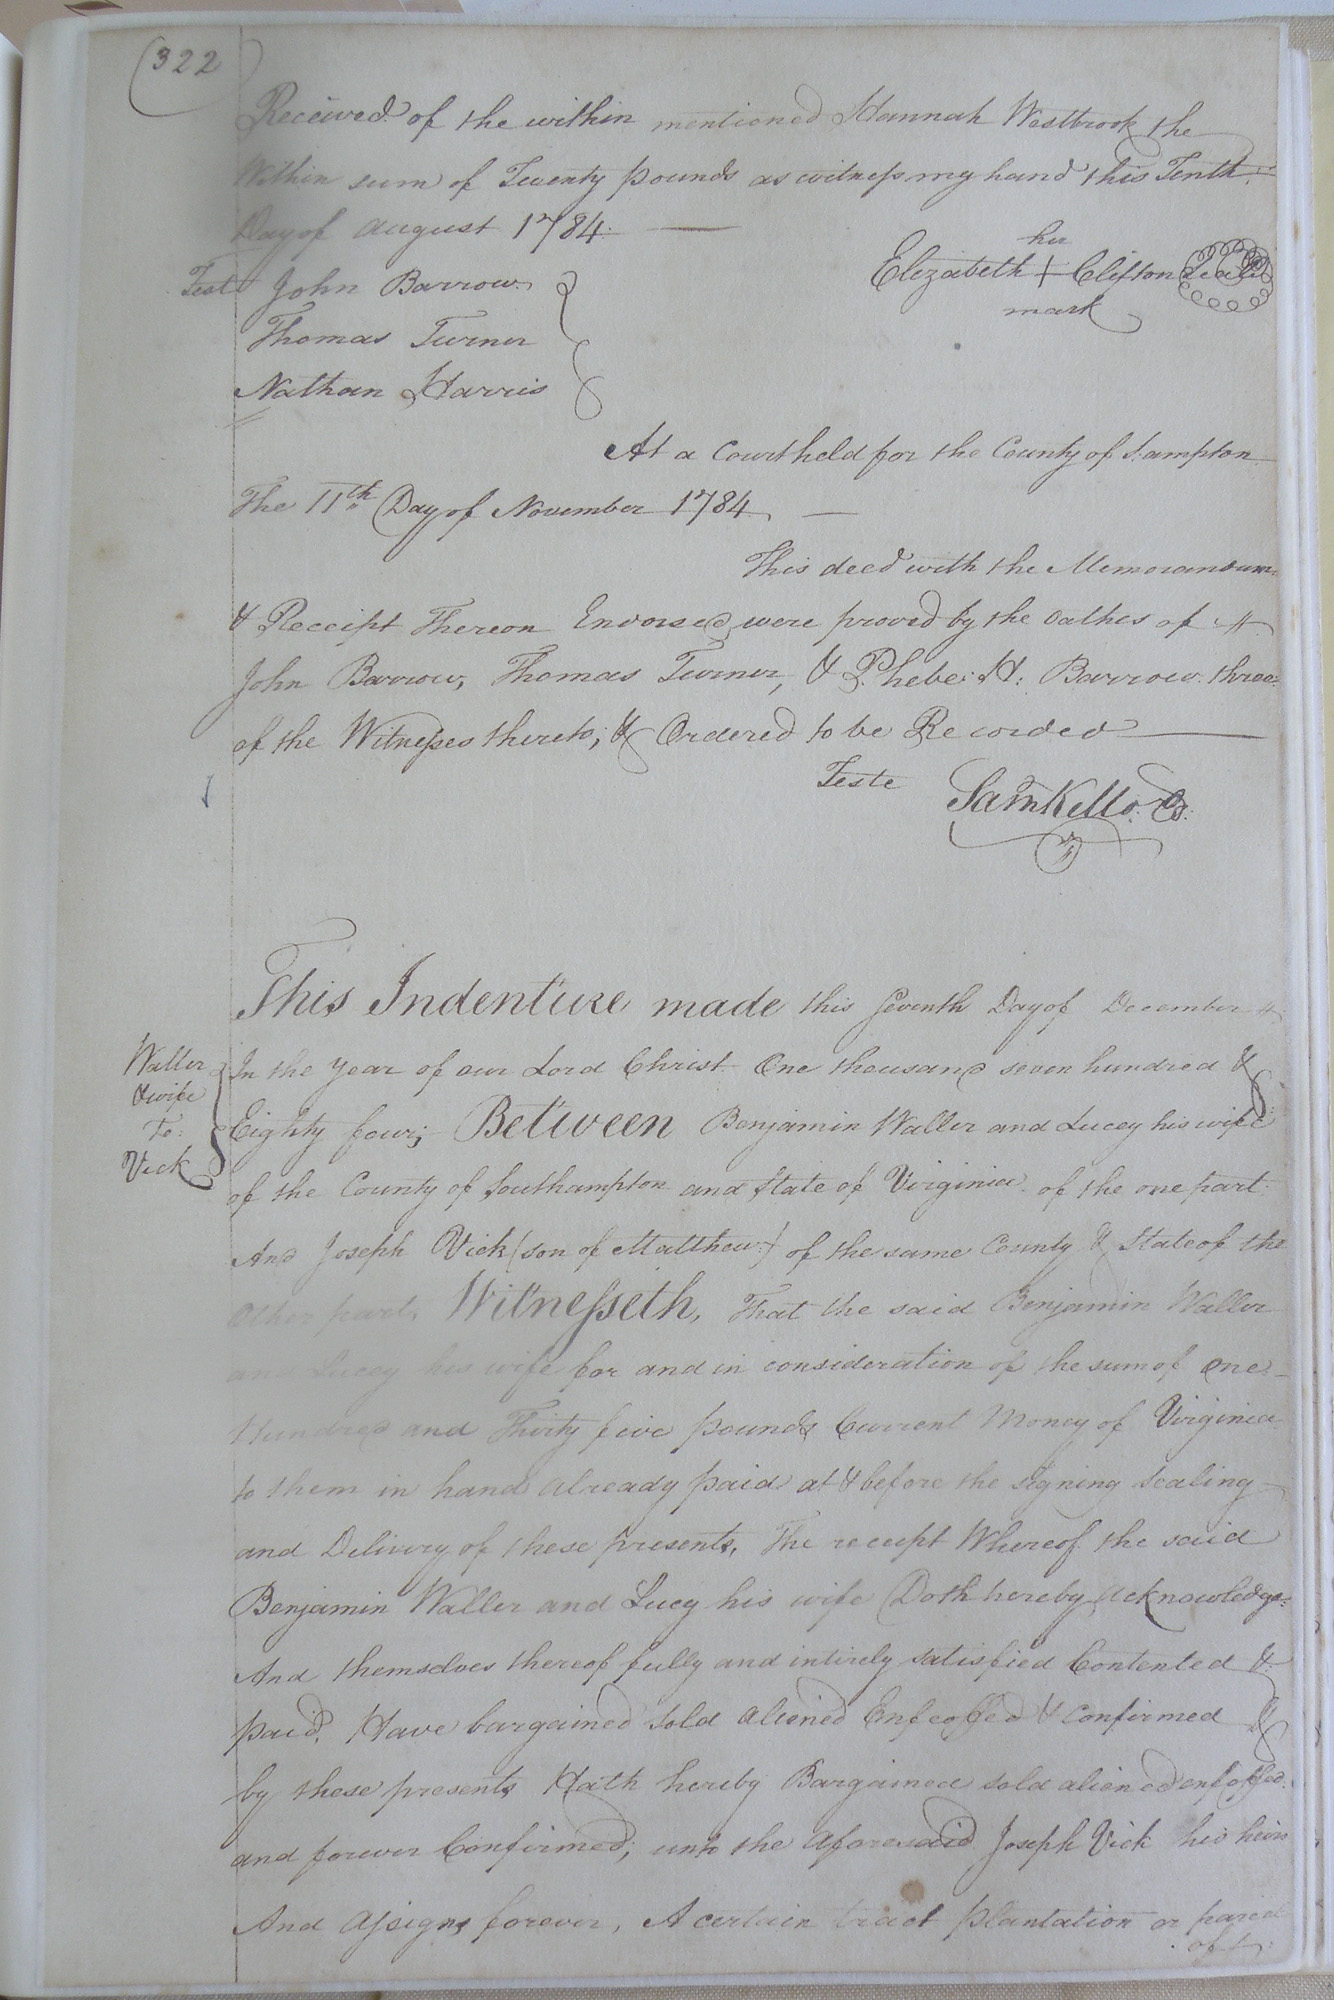 (322
Received of the within mentioned Hannah Westbrook the
Within sum of Twenty pounds as witness my hand this Tenth
Day of August 1784.
her
Elizabeth + Clifton Seal
mark
Test John Barrow
Thomas Turner
Nathan Harris
At a Court held for the County of S:ampton
The 11th Day of November 1784
This deed with the Memorandum
& Receipt Thereon Endorsed were proved by the oathes of
John Barrow, Thomas Turner, & Phebe H: Barrow three
of the Witnesses thereto; & Ordered to be Recorded
Teste Sam Kello: C:
This Indenture made this Seventh Day of December
Waller
& wife
To:
Vick
In the year of our Lord Christ One thousand seven hundred &
Eighty four; Between Benjamin Waller and Lucey his wife
of the County of Southampton and State of Virginia of the one part
And Joseph Vick (son of Matthew) of the same County & State of the
Other part, Witnesseth, That the said Benjamin Waller
an Lucey his wife for and in consideration of the sum of one
Hundred and Thirty five pounds Current Money of Virginia
to them in hand already paid at & before the signing Sealing
and Delivery of these presents, The receipt Whereof the said
Benjamin Waller and Lucy his wife Doth hereby acknowledge
And themselves thereof fully and intirely satisfied Contented &
paid, Have bargained sold aliened Enfeoffed & Confirmed &
by these presents Hath hereby Bargained sold aliened enfeoffed
and forever Confirmed; unto the Aforesaid Joseph Vick his heirs
And Assigns forever, A certain tract plantation or parcel
of